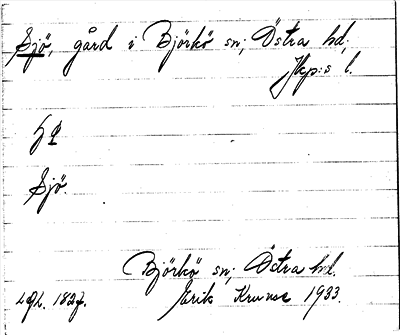 Sjö, gård i Björkö sn; Östra hd,
Jkp:s l.
Sjö.
Björkö sn; Östra hd.
Erik Kruuse 1933.